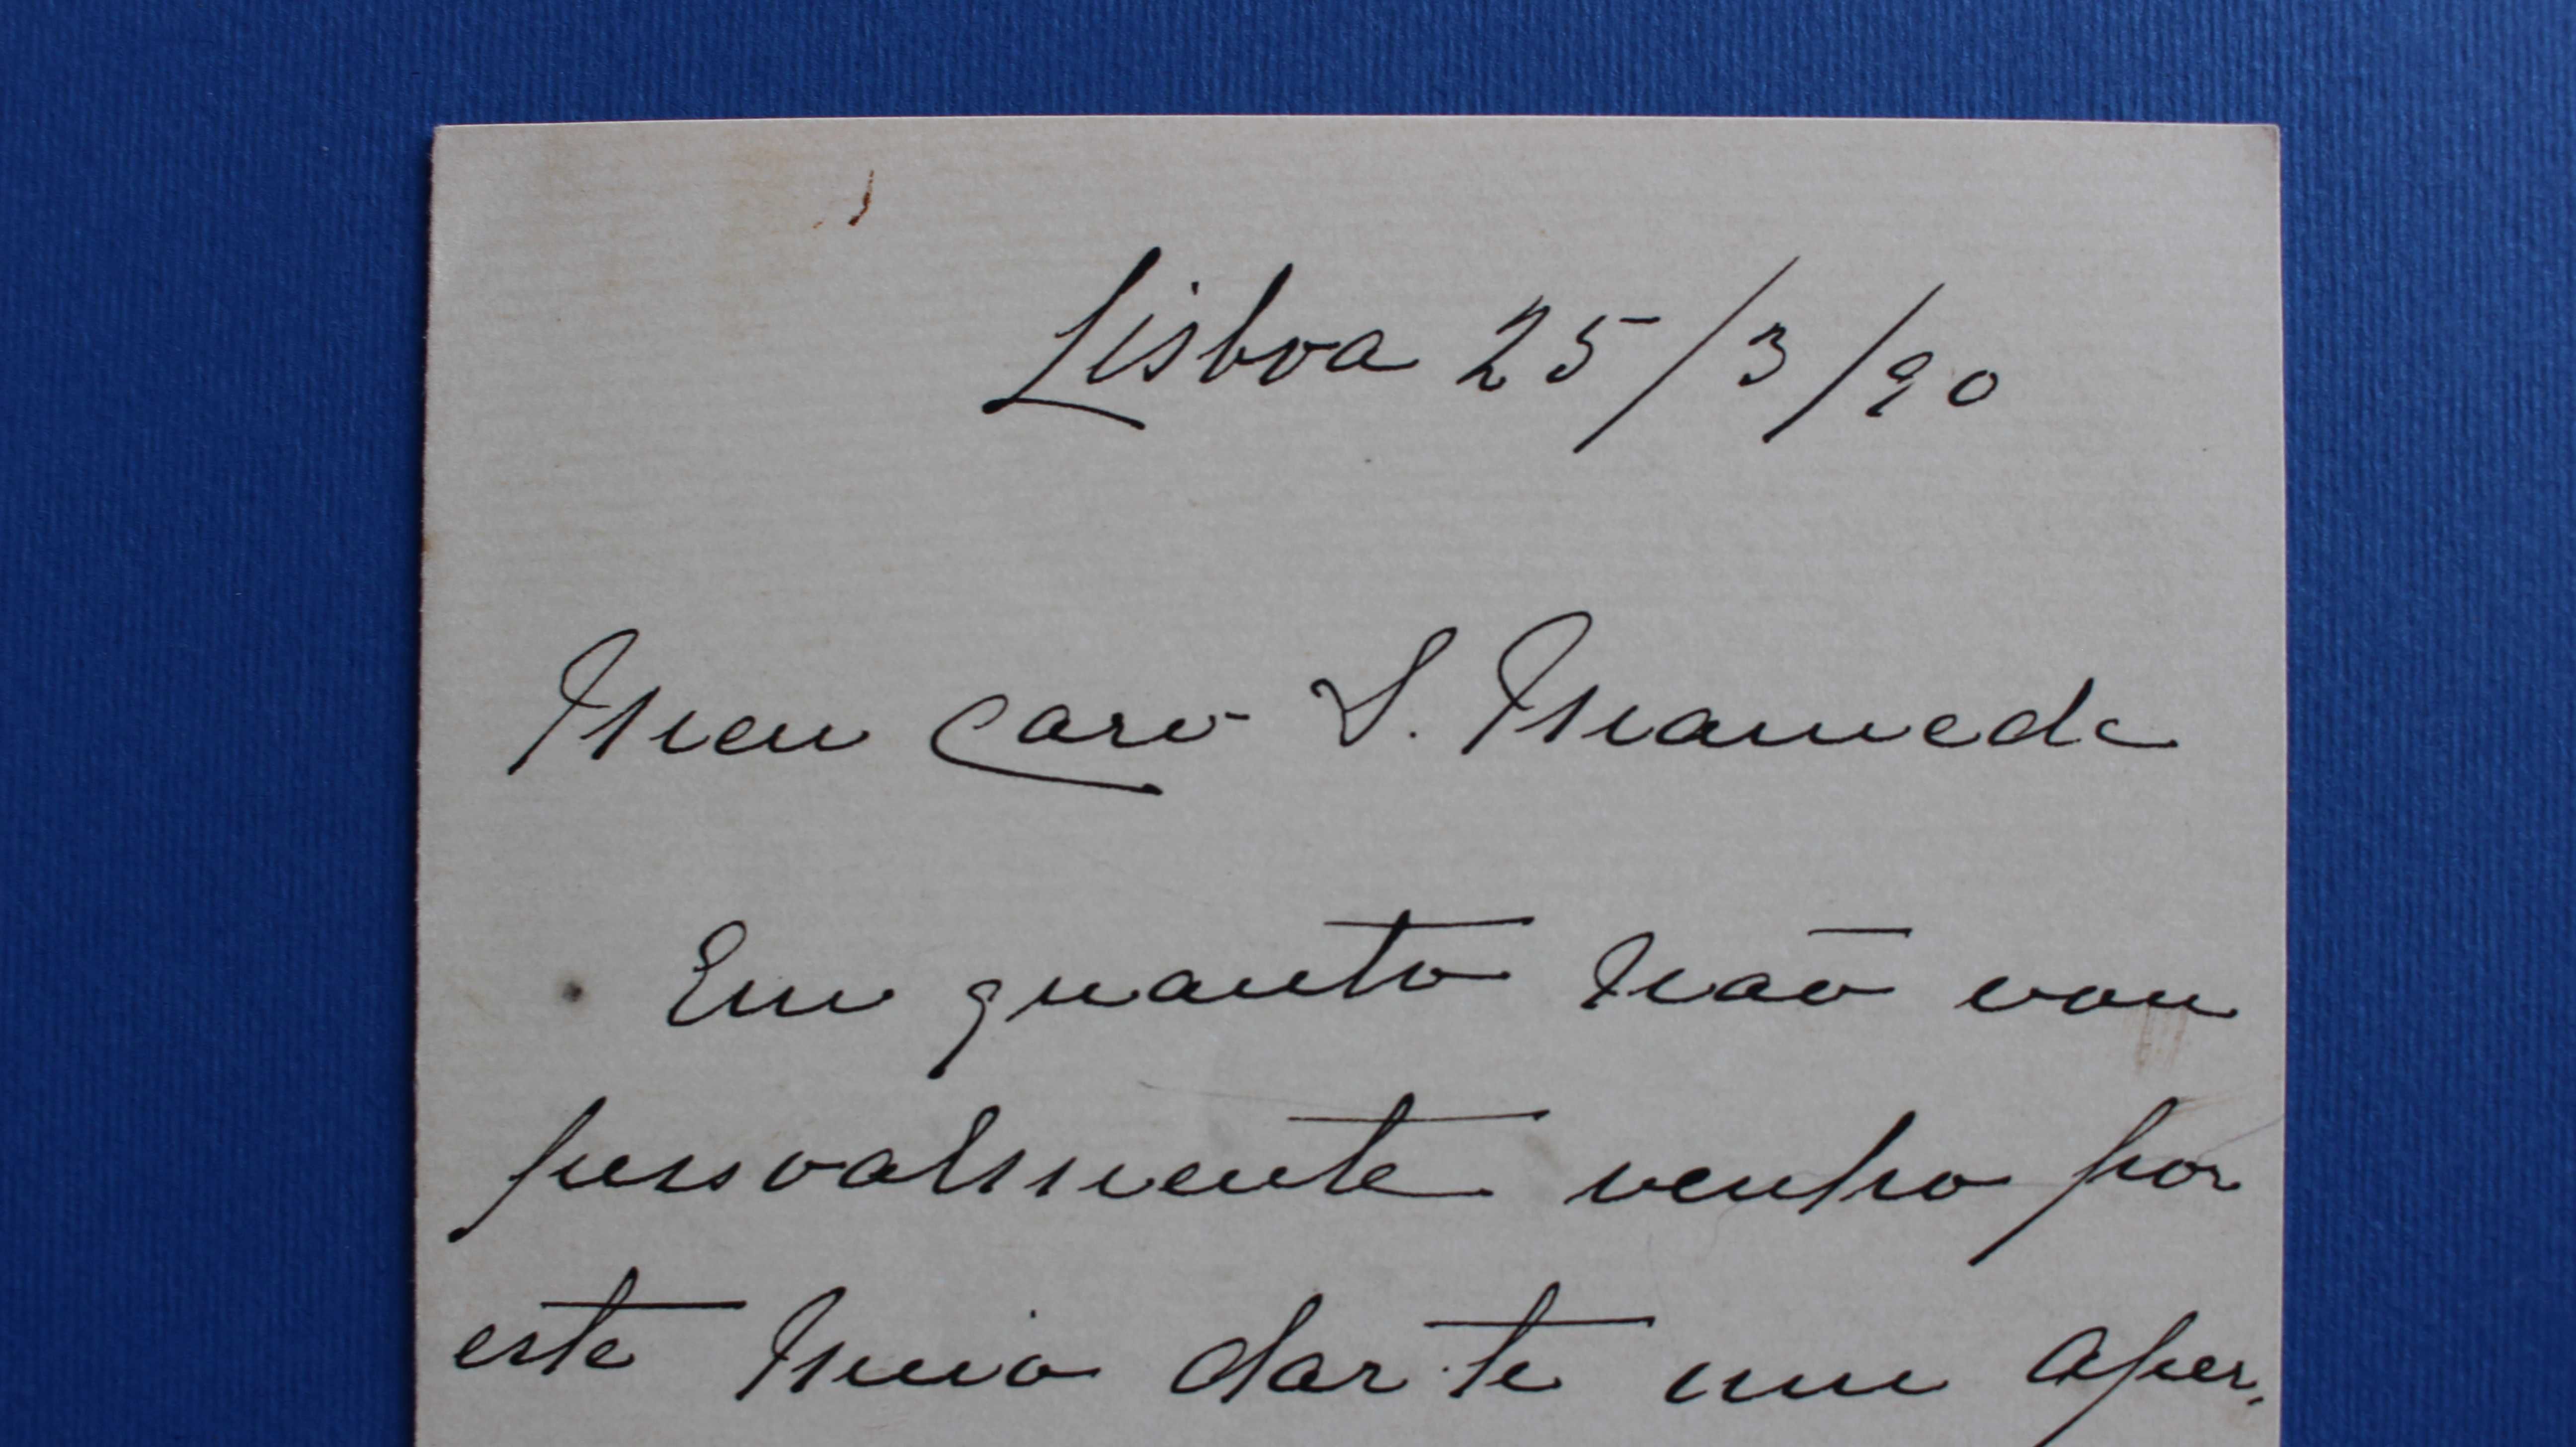 Lisboa 25/3/90
Meu caro S. Mamede
Em quanto não vou
pessoalmente venho por
este meio dar-te um aper-